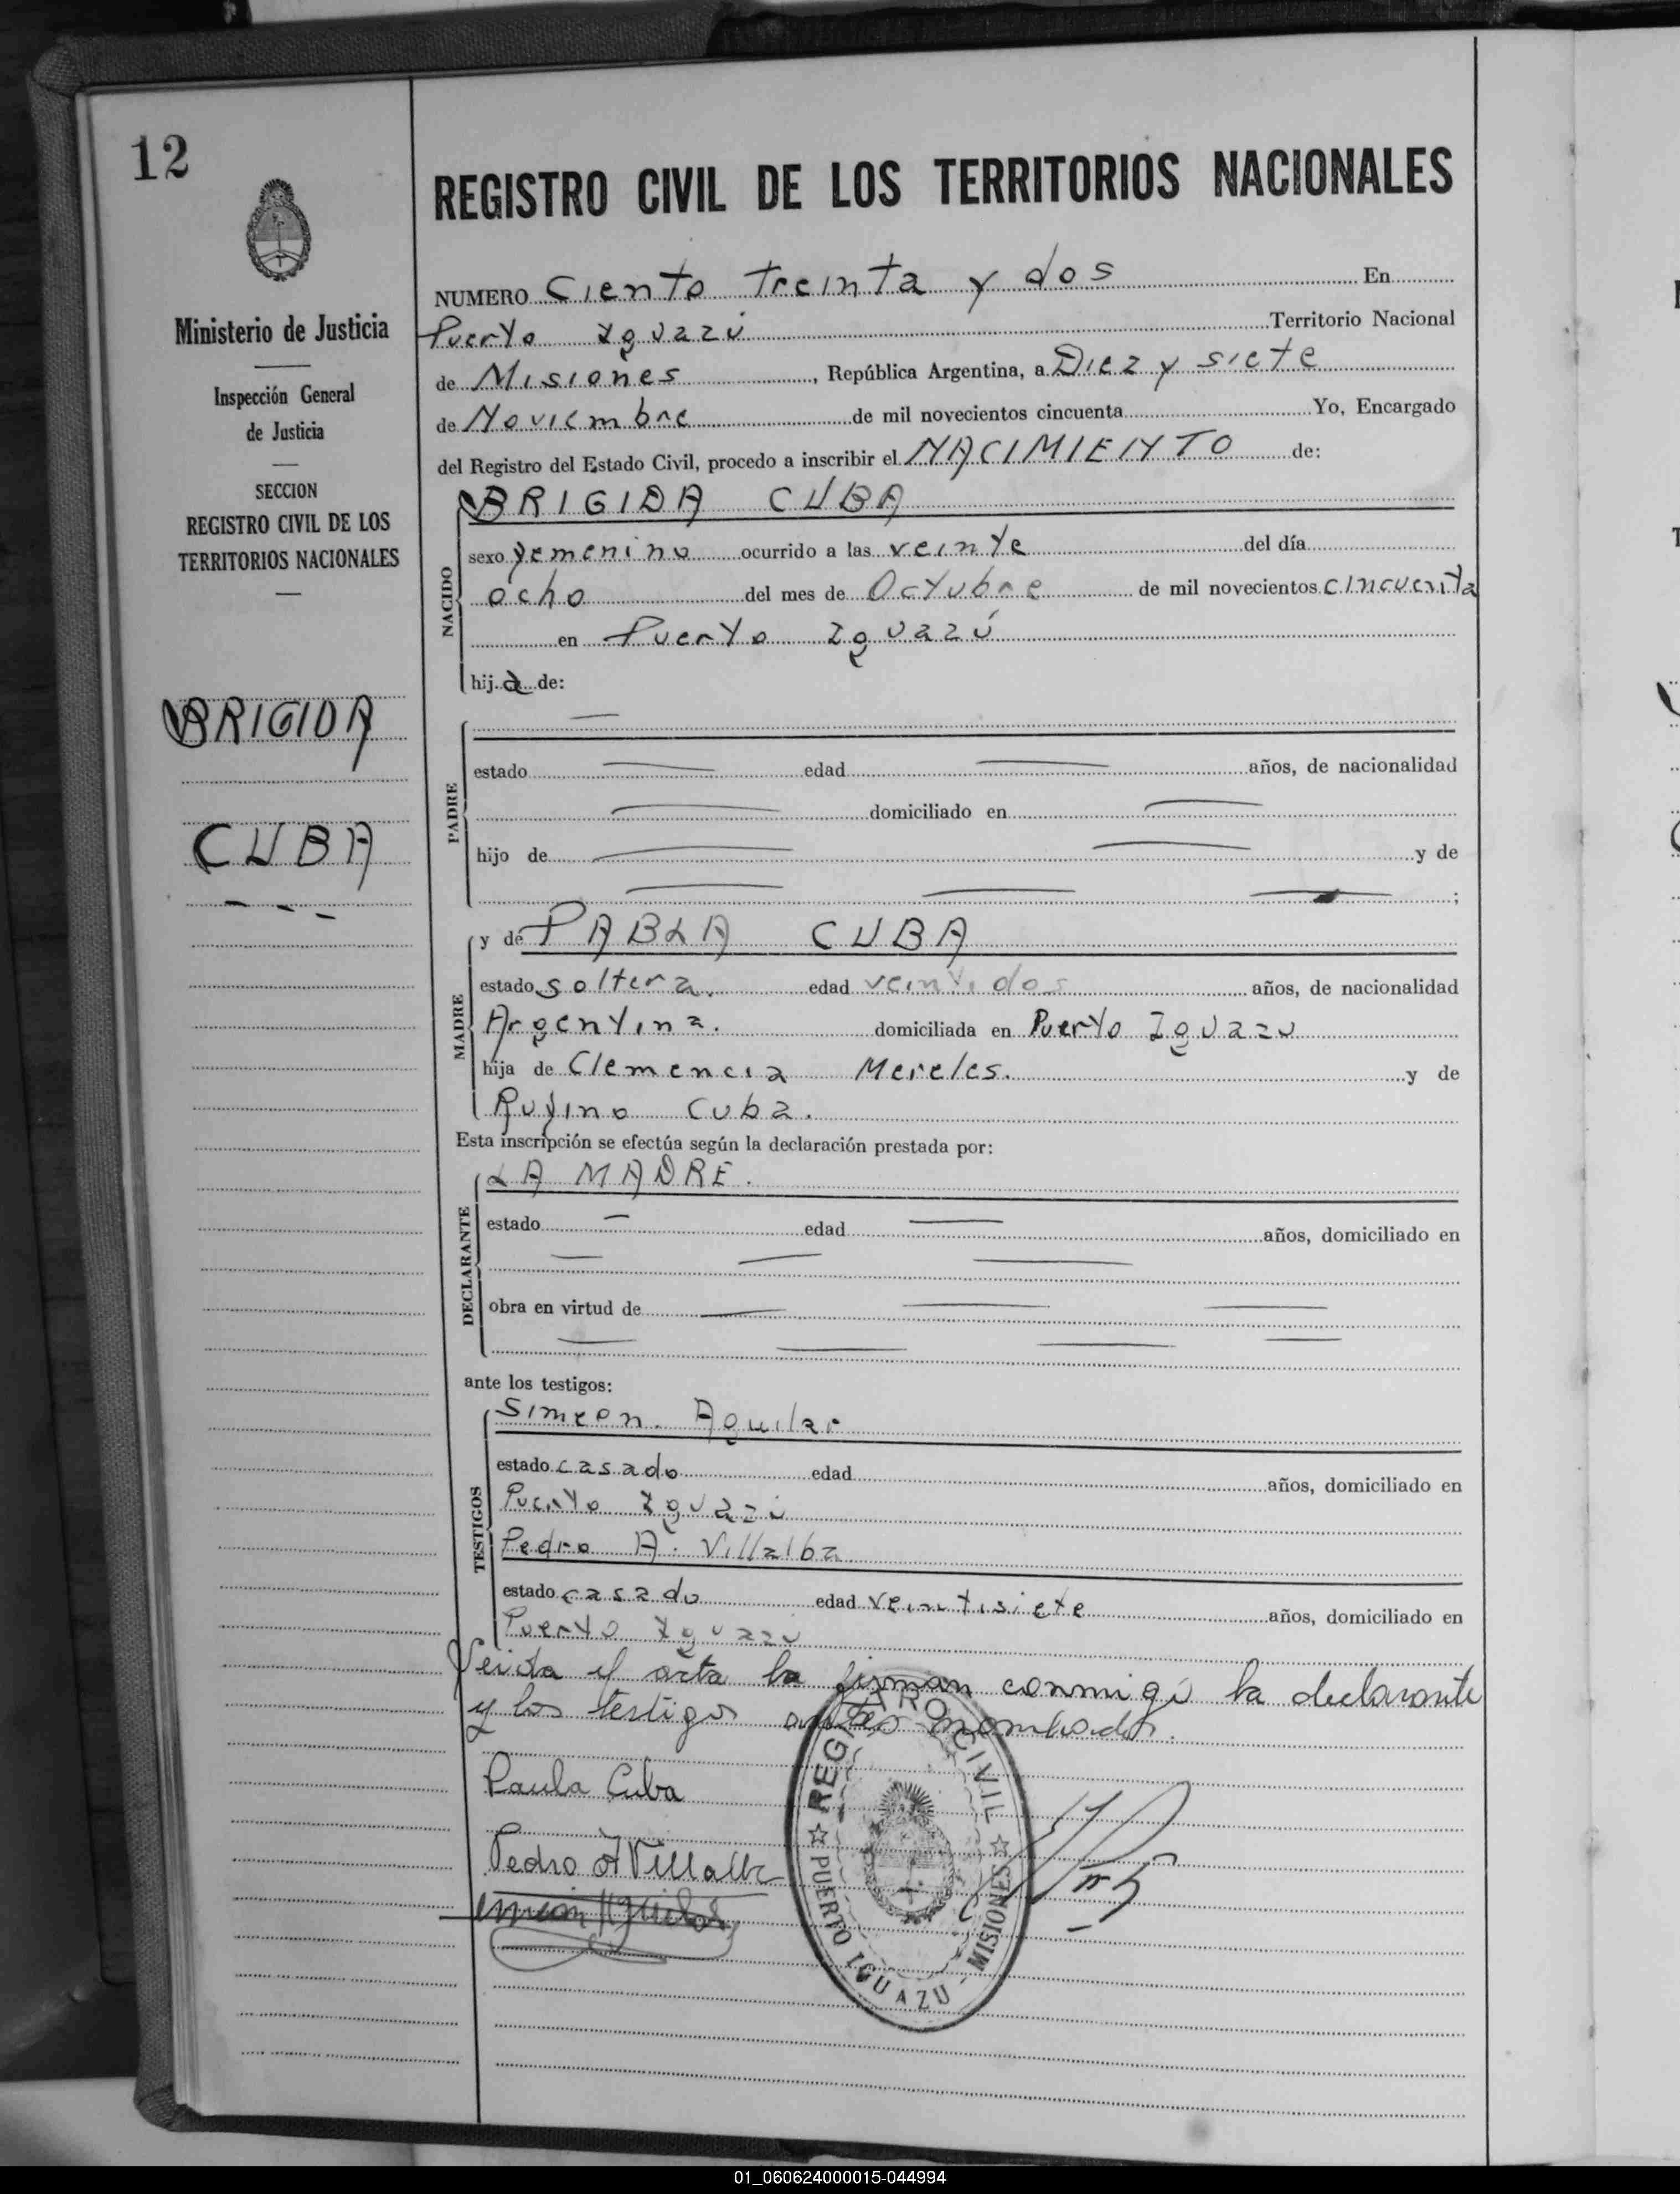 12
Ministerio de Justicia
Inspección General
de Justicia
SECCION
REGISTRO CIVIL DE LOS
TERRITORIOS NACIONALES
BRIGIDA
CUBA
REGISTRO CIVIL DE LOS TERRITORIOS NACIONALES
NUMERO Ciento treinta y dos En
Puerto Iguazú Territorio Nacional
de Misiones, República Argentina, a Diez y siete
de Noviembre de mil novecientos cincuenta Yo, Encargado
del Registro del Estado Civil, procedo a inscribir el NACIMIENTO de:
NACIDO
BRIGIDA CUBA
sexo femenino ocurrido a las veinte del día
ocho del mes de Octubre de mil novecientos cincuenta
en Puerto Iguazú
hija de:
PADRE
estado edad años, de nacionalidad
domiciliado en
hijo de y de
;
MADRE
y de PABLA CUBA
estado soltera. edad veintidos años, de nacionalidad
Argentina. domiciliada en Puerto Iguazu
hija de Clemencia Mereles. y de
Rufino Cuba.
Esta inscripción se efectúa según la declaración prestada por:
DECLARANTE
LA MADRE.
estado edad años, domiciliado en
obra en virtud de
ante los testigos:
TESTIGOS
Simeon. Aguilar
estado casado edad años, domiciliado en
Puerto Iguazú
Pedro A. Villalba
estado casado edad veintisiete años, domiciliado en
Puerto Iguazu
Leida el acta la firman conmigo la declarante
y los testigos antes nombrados.
Paula Cuba
Pedro A Villalba
REGISTRO CIVIL
PUERTO IGUAZU - MISIONES
01_060624000015-044994